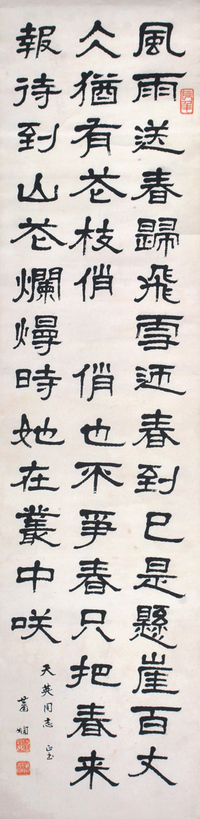 風雨送春歸飛雪迎春到已是懸崖百丈
仌猶有花枝俏 俏也不爭春只把春来
報待到山花爛熳時她在叢中咲
天英同志
蕭嫻